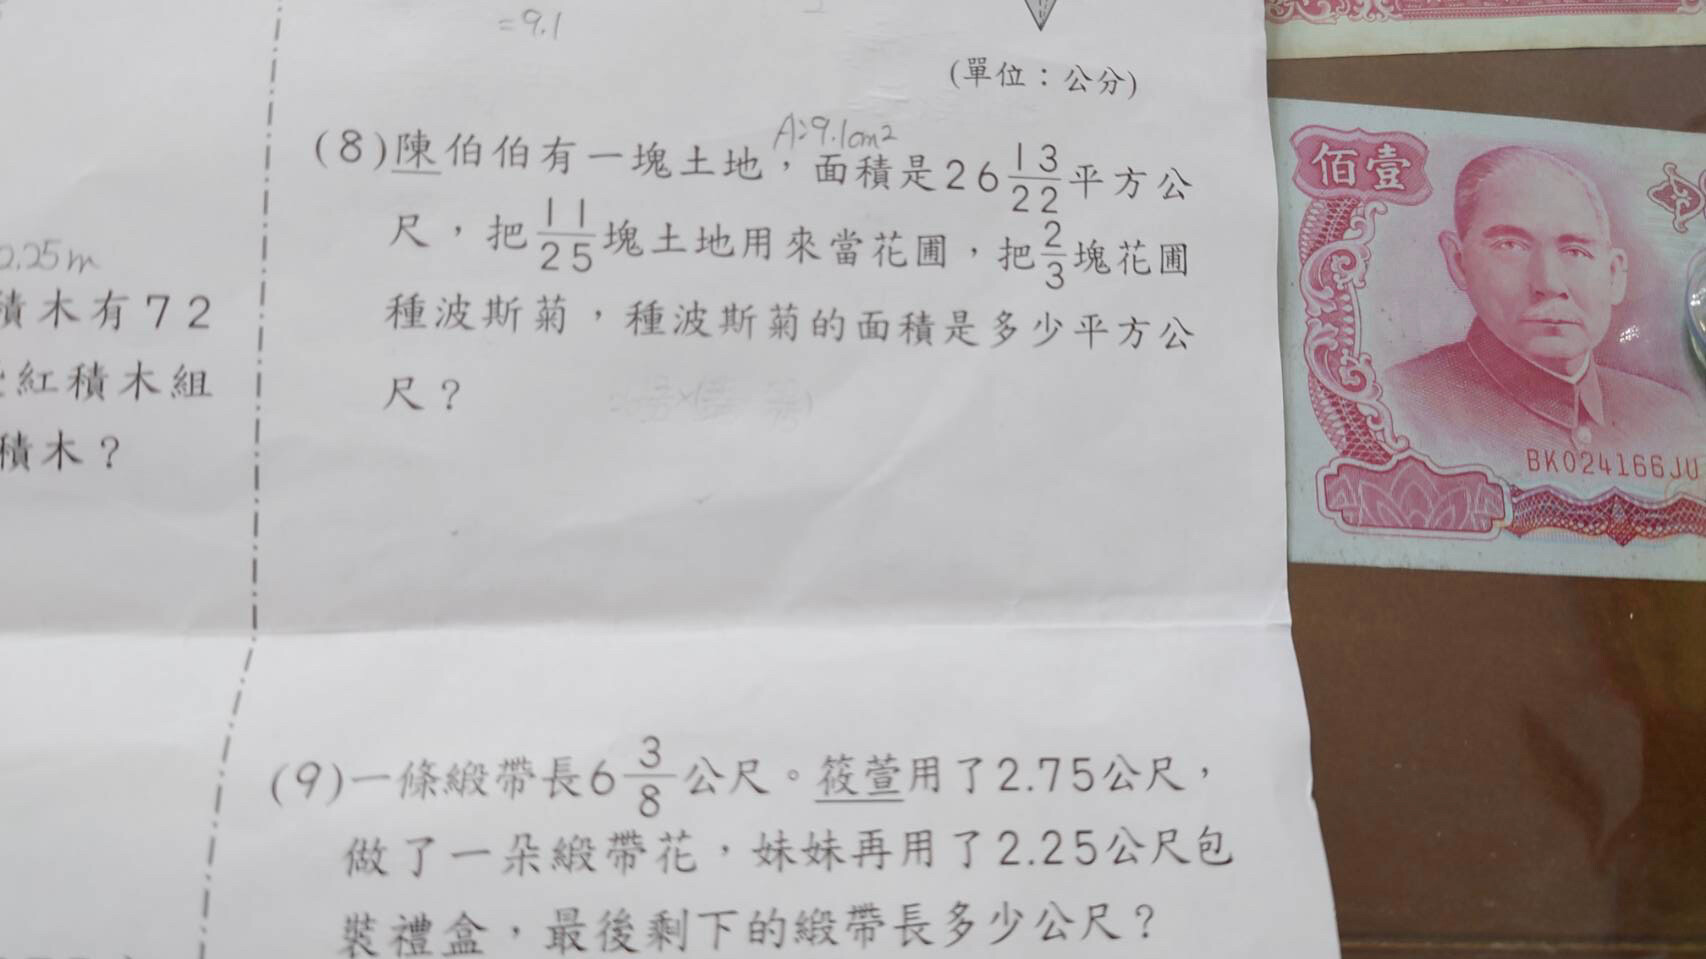 =9.1
(單位：公分)
A:9.1cm²
(8)陳伯伯有一塊土地，面積是26 13/22 平方公
尺，把 11/25 塊土地用來當花圃，把 2/3 塊花圃
種波斯菊，種波斯菊的面積是多少平方公
尺？
(9)一條緞帶長6 3/8 公尺。筱萱用了2.75公尺，
做了一朵緞帶花，妹妹再用了2.25公尺包
裝禮盒，最後剩下的緞帶長多少公尺？
2.25m
積木有72
紅積木組
積木？
佰壹
BK024166JU